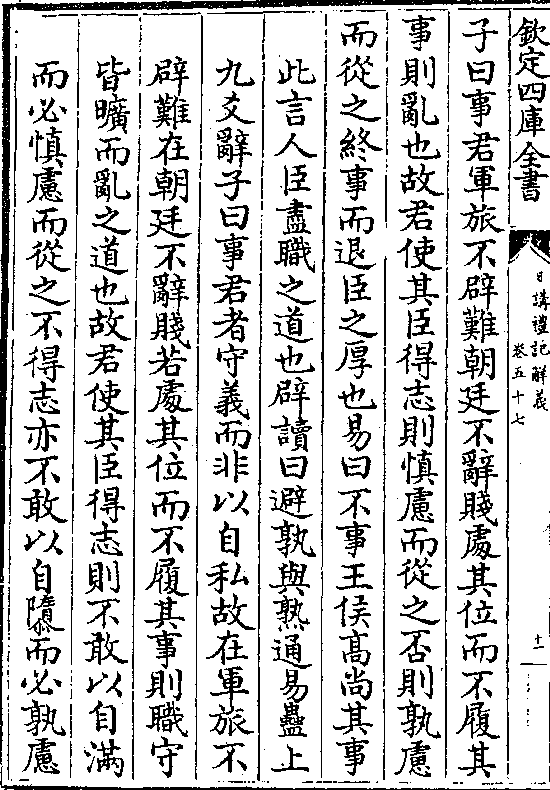 欽定四庫全書
日講禮記解義
卷五十七
十一
子曰事君軍旅不辟難朝廷不辭賤處其位而不履其
事則亂也故君使其臣得志則慎慮而從之否則孰慮
而從之終事而退臣之厚也易曰不事王侯髙尚其事
此言人臣盡職之道也辟讀曰避孰與熟通易蠱上
九爻辭子曰事君者守義而非以自私故在軍旅不
辟難在朝廷不辭賤若處其位而不履其事則職守
皆曠而亂之道也故君使其臣得志則不敢以自滿
而必慎慮而從之不得志亦不敢以自隳而必孰慮